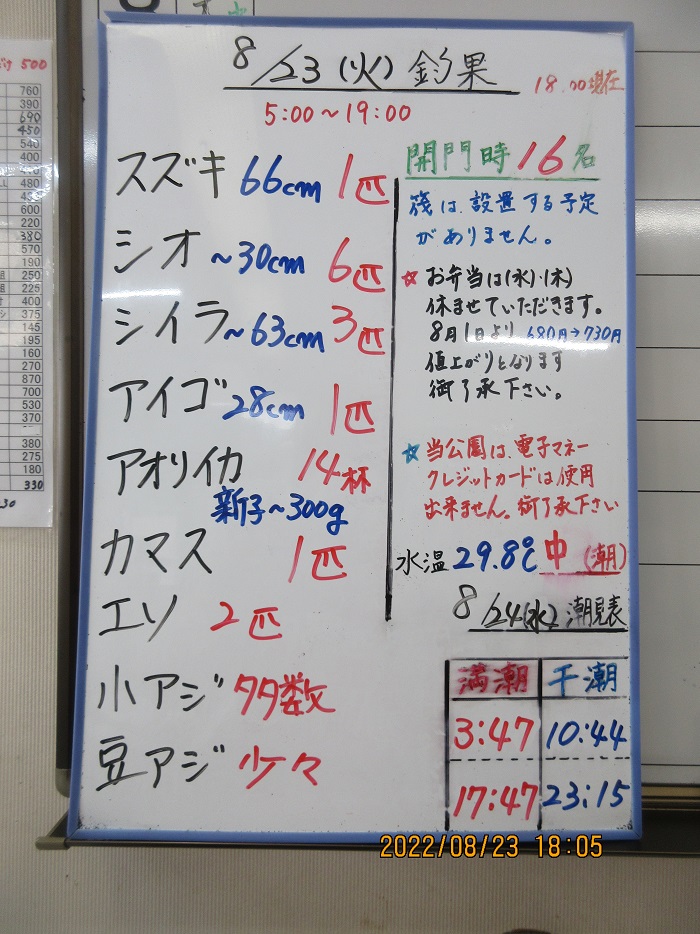 8/23(火) 釣果
18.00現在
5:00～19:00
スズキ 66cm 1匹
シオ ～30cm 6匹
シイラ ～63cm 3匹
アイゴ 28cm 1匹
アオリイカ 14杯
新子～300g
カマス 1匹
エソ 2匹
小アジ 多数
豆アジ 少々
開門時16名
筏は、設置する予定
がありません。
☆ お弁当は(水)・(木)
休ませていただきます。
8月1日より 680円→730円
値上がりとなります
御了承下さい。
☆ 当公園は、電子マネー
クレジットカードは使用
出来ません。御了承下さい
水温 29.8℃ 中(潮)
8/24(水)潮見表
満潮 干潮
3:47 10:44
17:47 23:15
2022/08/23 18:05
500
760
390
690
450
540
400
480
430
600
220
380
570
190
250
225
400
375
145
195
160
270
870
700
530
370
380
275
180
330